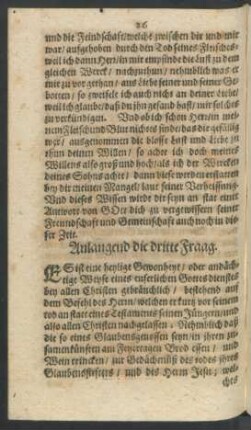 26
und die Feindschafft/welche zwischen dir und mir
war/ auffgehoben durch den Tod seines Fleisches/
weil ich dann Herr/in mir empfinde die lust zu dem
gleichen Werck/ nachzuthun/ nehmblich was er
mir zu vor gethan/ aus liebe seiner und seiner Ge-
botten/ so zweifele ich auch nichts an deiner Liebe/
weil ich glaube/daß du ihn gesand hast/ mir solches
zu verkündigen. Und ob ich schon Herr in mei-
nem Fleisch und Blut nichts finde/das dir gefällig
wer/ ausgenommen die blosse lust und liebe zu
thun deinen Willen/ so achte ich doch meines
Willens also groß und hoch/als ich der Wercken
deines Sohns achte/ dann diese werden erstatten
bey dir meinen Mangel/ laut seiner Verheissung.
Und dieses Wissen wirdt dir seyn an stat einer
Antwort von GOtt dich zu vergewissern seiner
Freundschafft und Gemeinschafft auch noch in die-
ser Zeit.
Anlangend die dritte Fraag.
ES ist eine heylige Gewonheyt/ oder andäch-
tige Weyse eines euserlichen Gottesdienstes
bey allen Christen gebräuchlich/ bestehend auf
dem Befehl des Herrn/welchen er kurtz vor seinem
tod an statt eines Testamentes seinen Jüngern/und
also allen Christen nachgelassen/ Nehmblich daß
die so eines Glaubensgenossen seyn/in ihren zu-
samenkünften am Feyertagen Brod essen/ und
Wein trincken/ zur Gedächtnüß des todes ihres
Glaubensstiffters/ und des Herrn Jesu; wel-
ches